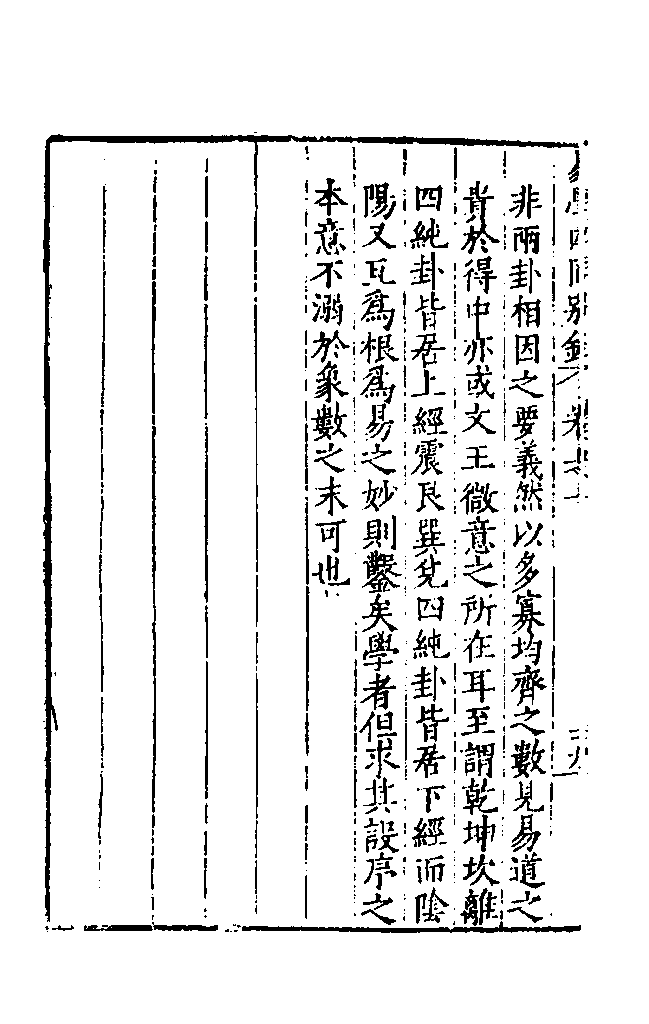 非兩卦相因之要義然以多寡均齊之數見易道之
貴於得中亦或文王微意之所在耳至謂乾坤坎離
四純卦皆居上經震艮巽兌四純卦皆居下經而陰
陽又互爲根爲易之妙則鑿矣學者但求其設序之
本意不溺於象數之末可也